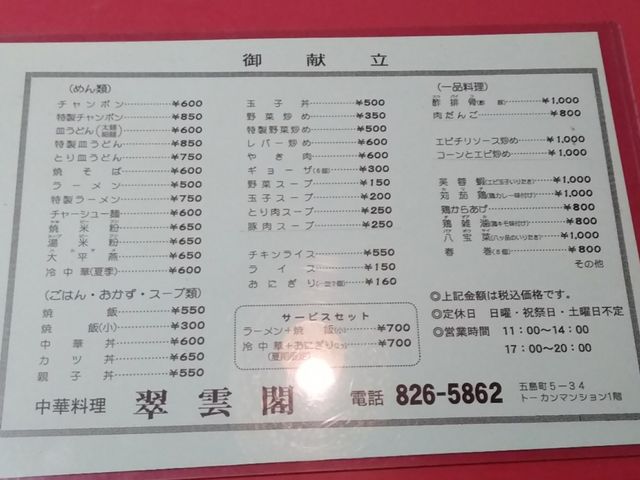 御献立
(めん類)
チャンポン ¥600
特製チャンポン ¥850
皿うどん(太麺 細麺) ¥600
特製皿うどん ¥850
とり皿うどん ¥750
焼そば ¥600
ラーメン ¥500
特製ラーメン ¥750
チャーシュー麺 ¥600
焼米粉 ¥650
湯米粉 ¥650
大平燕 ¥650
冷中華(夏季) ¥600
(ごはん・おかず・スープ類)
焼飯 ¥550
焼飯(小) ¥300
中華丼 ¥600
カツ丼 ¥650
親子丼 ¥550
玉子丼 ¥500
野菜炒め ¥350
特製野菜炒め ¥500
レバー炒め ¥600
やき肉 ¥600
ギョーザ(6個) ¥300
野菜スープ ¥150
玉子スープ ¥200
とり肉スープ ¥250
豚肉スープ ¥250
チキンライス ¥550
ライス ¥150
おにぎり ¥160
サービスセット
ラーメン+焼飯(小) ¥700
冷中華+おにぎり ¥700
(一品料理)
酢排骨 ¥1,000
肉だんご ¥800
エビチリソース炒め ¥1,000
コーンとエビ炒め ¥1,000
芙蓉蝦(エビ玉子いりたき) ¥1,000
茄鶏(鶏カレー味付け) ¥1,000
鶏からあげ ¥800
鶏雑(鶏キモ味付け) ¥800
八宝菜(八ッ品のいりたき) ¥1,000
春巻(8個) ¥800
その他
◎上記金額は税込価格です。
◎定休日 日曜・祝祭日・土曜日不定
◎営業時間 11:00〜14:00
17:00〜20:00
中華料理 翠雲閣 電話 826-5862
五島町5-34
トーカンマンション1階